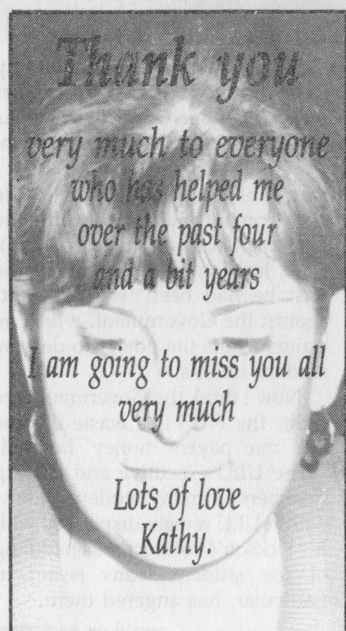 Thank you
very much to everyone
who has helped me
over the past four
and a bit years
I am going to miss you all
very much
Lots of love
Kathy.